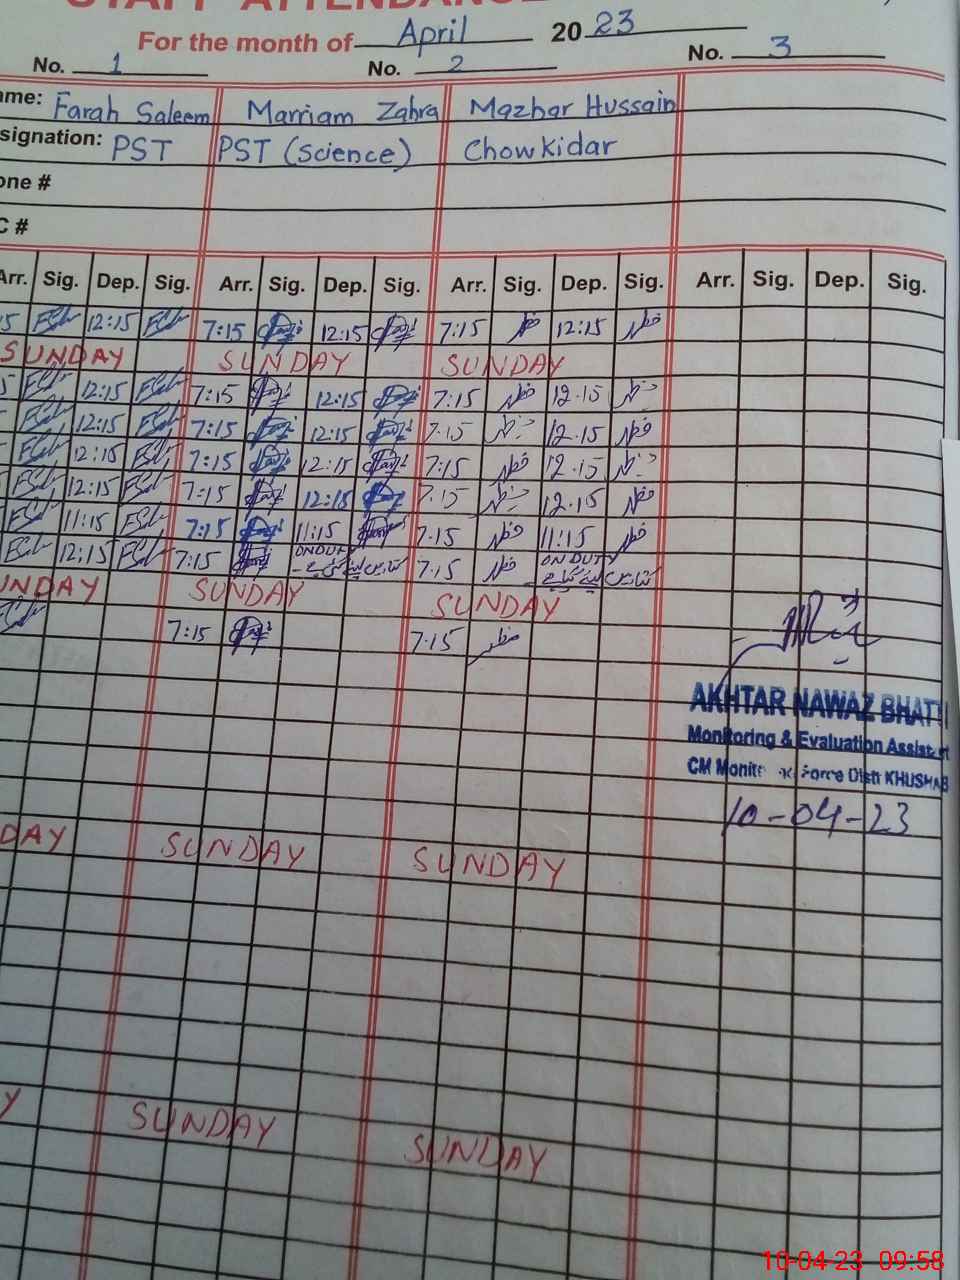 STAFF ATTENDANCE
For the month of April 2023
No. 1 No. 2 No. 3
ame: Farah Saleem Marriam Zahra Mazhar Hussain
signation: PST PST (Science) Chowkidar
one #
C #
Arr. Sig. Dep. Sig. Arr. Sig. Dep. Sig. Arr. Sig. Dep. Sig. Arr. Sig. Dep. Sig.
5 12:15 7:15 12:15 7:15 12:15
SUNDAY SUNDAY SUNDAY
5 12:15 7:15 12:15 7:15 12.15
12:15 7:15 12:15 7.15 12.15
12:15 7:15 12:15 7:15 12.15
12:15 7:15 12:15 7.15 12.15
11:15 7:15 11:15 7.15 11:15
12:15 7:15 ON DUTY 7.15 ON DUTY
UNDAY SUNDAY SUNDAY
7:15 7.15
AKHTAR NAWAZ BHATTI
Monitoring & Evaluation Assistant
CM Monit Force Distt KHUSHAB
10-04-23
DAY SUNDAY SUNDAY
Y SUNDAY SUNDAY
10-04-23 09:58